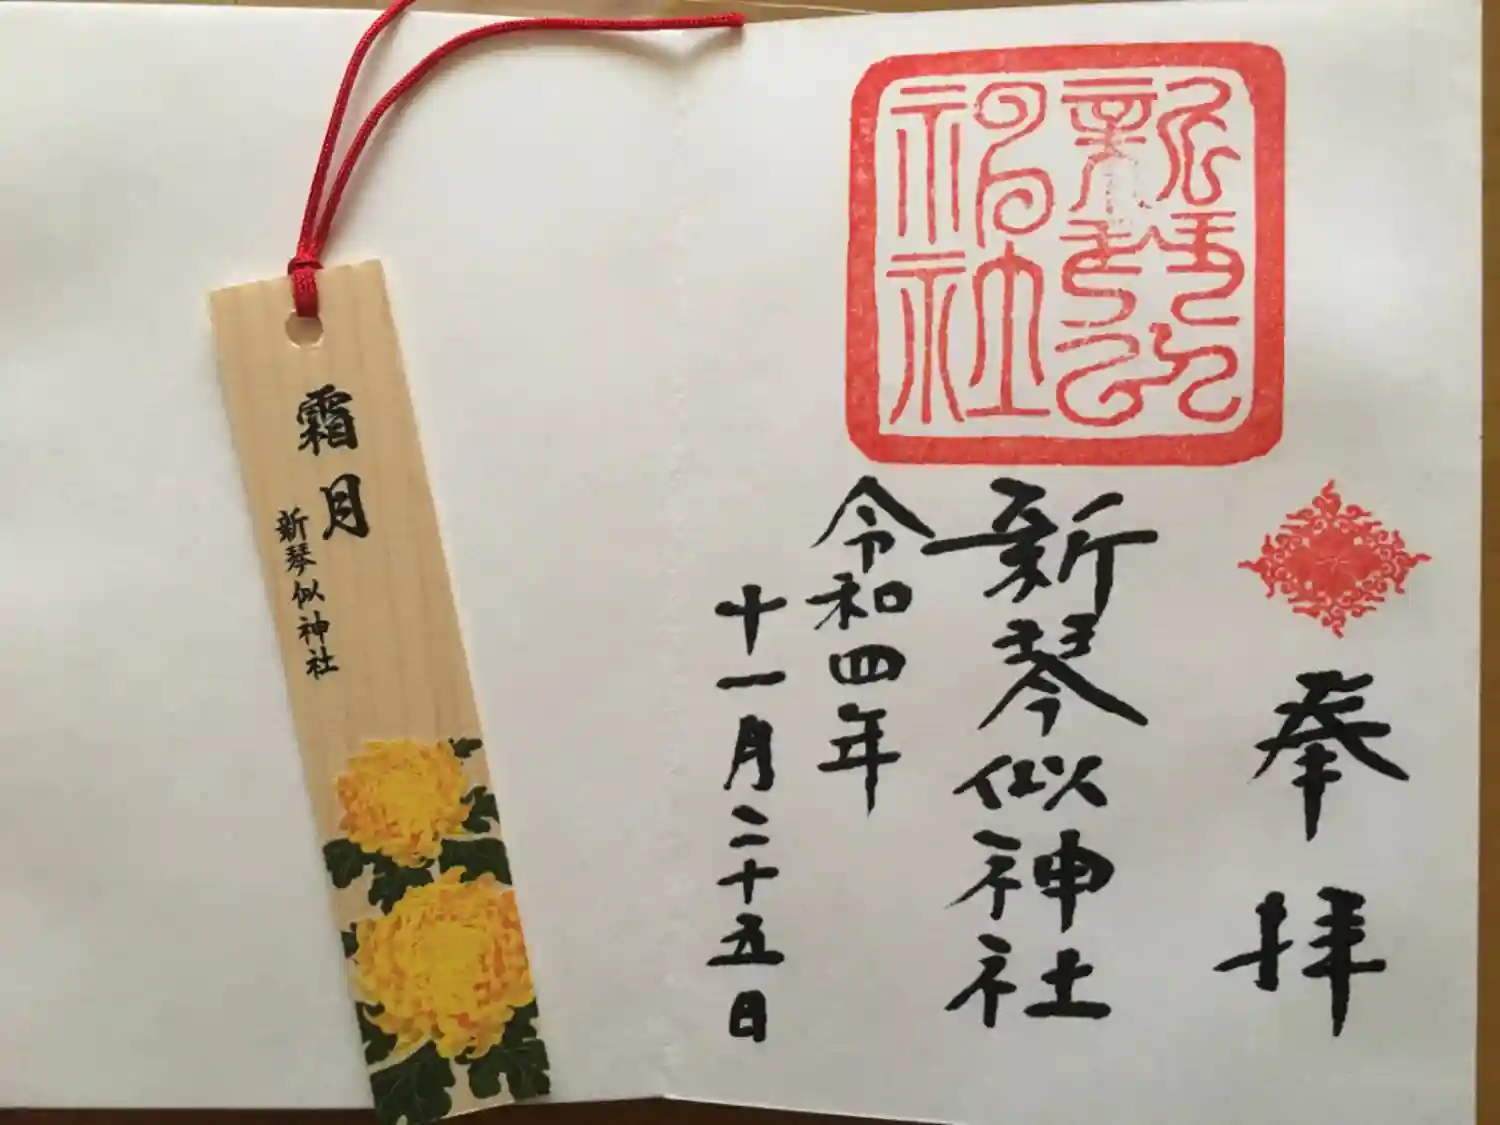 奉拝
新琴似神社
令和四年
十一月二十五日
新琴似
神社
霜月
新琴似神社